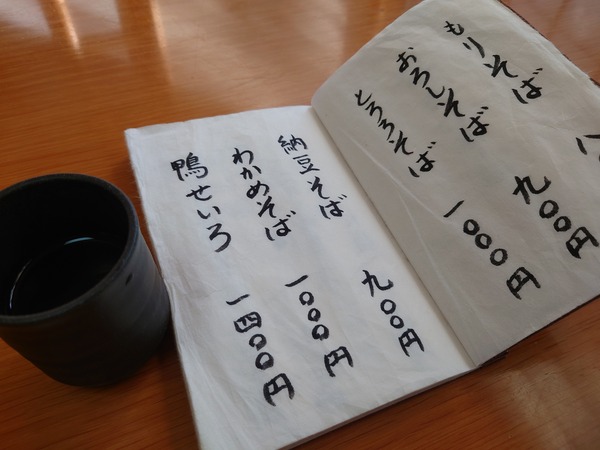 もりそば
おろしそば 九〇〇円
とろろそば 一〇〇〇円
納豆そば 九〇〇円
わかめそば 一〇〇〇円
鴨せいろ 一四〇〇円